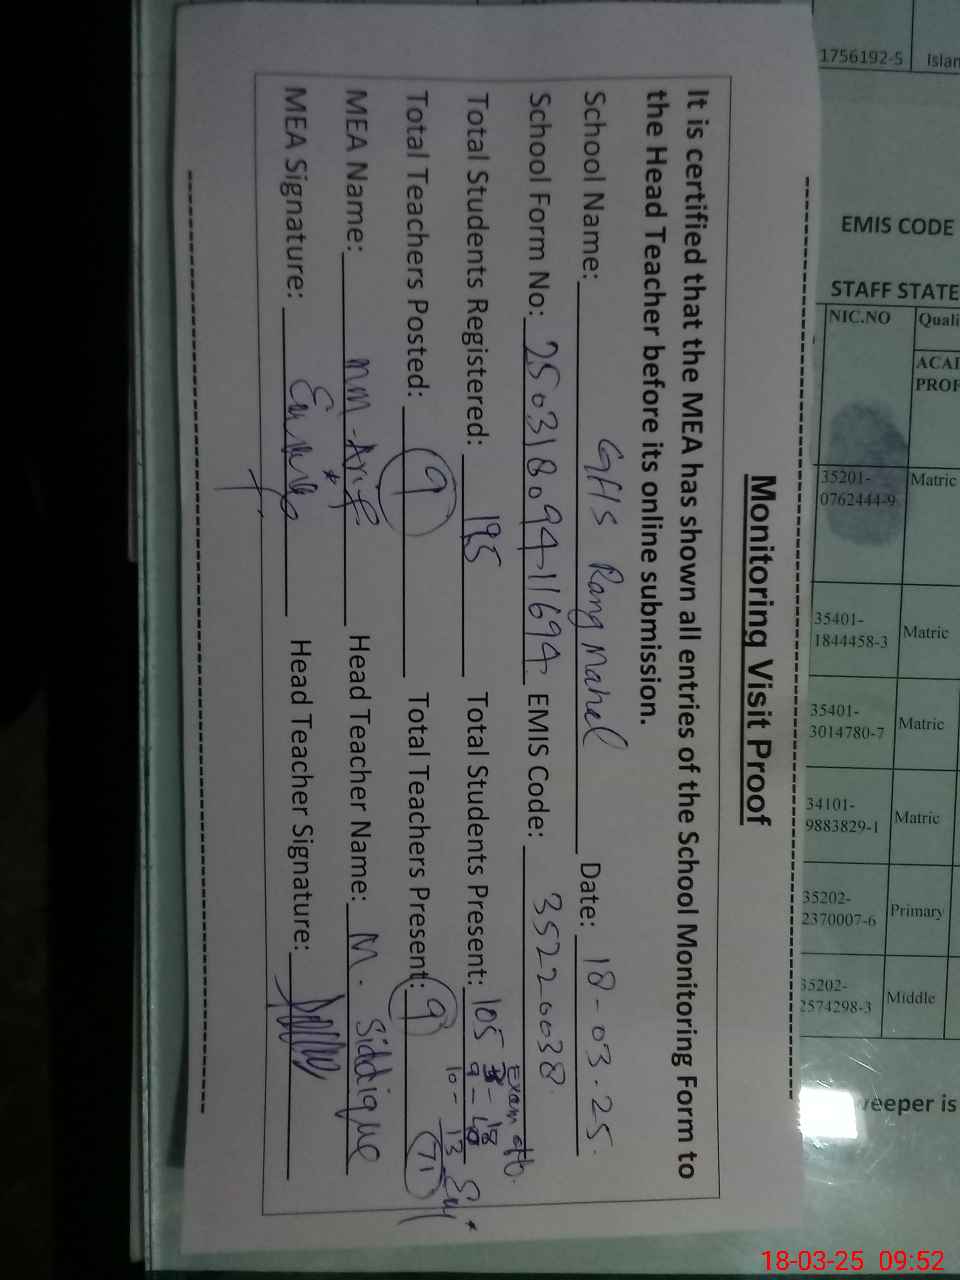 Monitoring Visit Proof
It is certified that the MEA has shown all entries of the School Monitoring Form to
the Head Teacher before its online submission.
School Name: GHS Rang Mahel Date: 18-03-25.
School Form No: 2503180941694 EMIS Code: 35220038
Total Students Registered: 195 Total Students Present: 105
Exam
9 - 18
10 - 13
Total Teachers Posted: 9 Total Teachers Present: 9
71
MEA Name: MM-Arif Head Teacher Name: M. Siddique
MEA Signature: Head Teacher Signature:
1756192-5 Islam
EMIS CODE
STAFF STATE
NIC.NO Quali
ACAD
PROF
35201-
0762444-9 Matric
35401-
1844458-3 Matric
35401-
3014780-7 Matric
34101-
9883829-1 Matric
35202-
2370007-6 Primary
35202-
2574298-3 Middle
weeper is
18-03-25 09:52